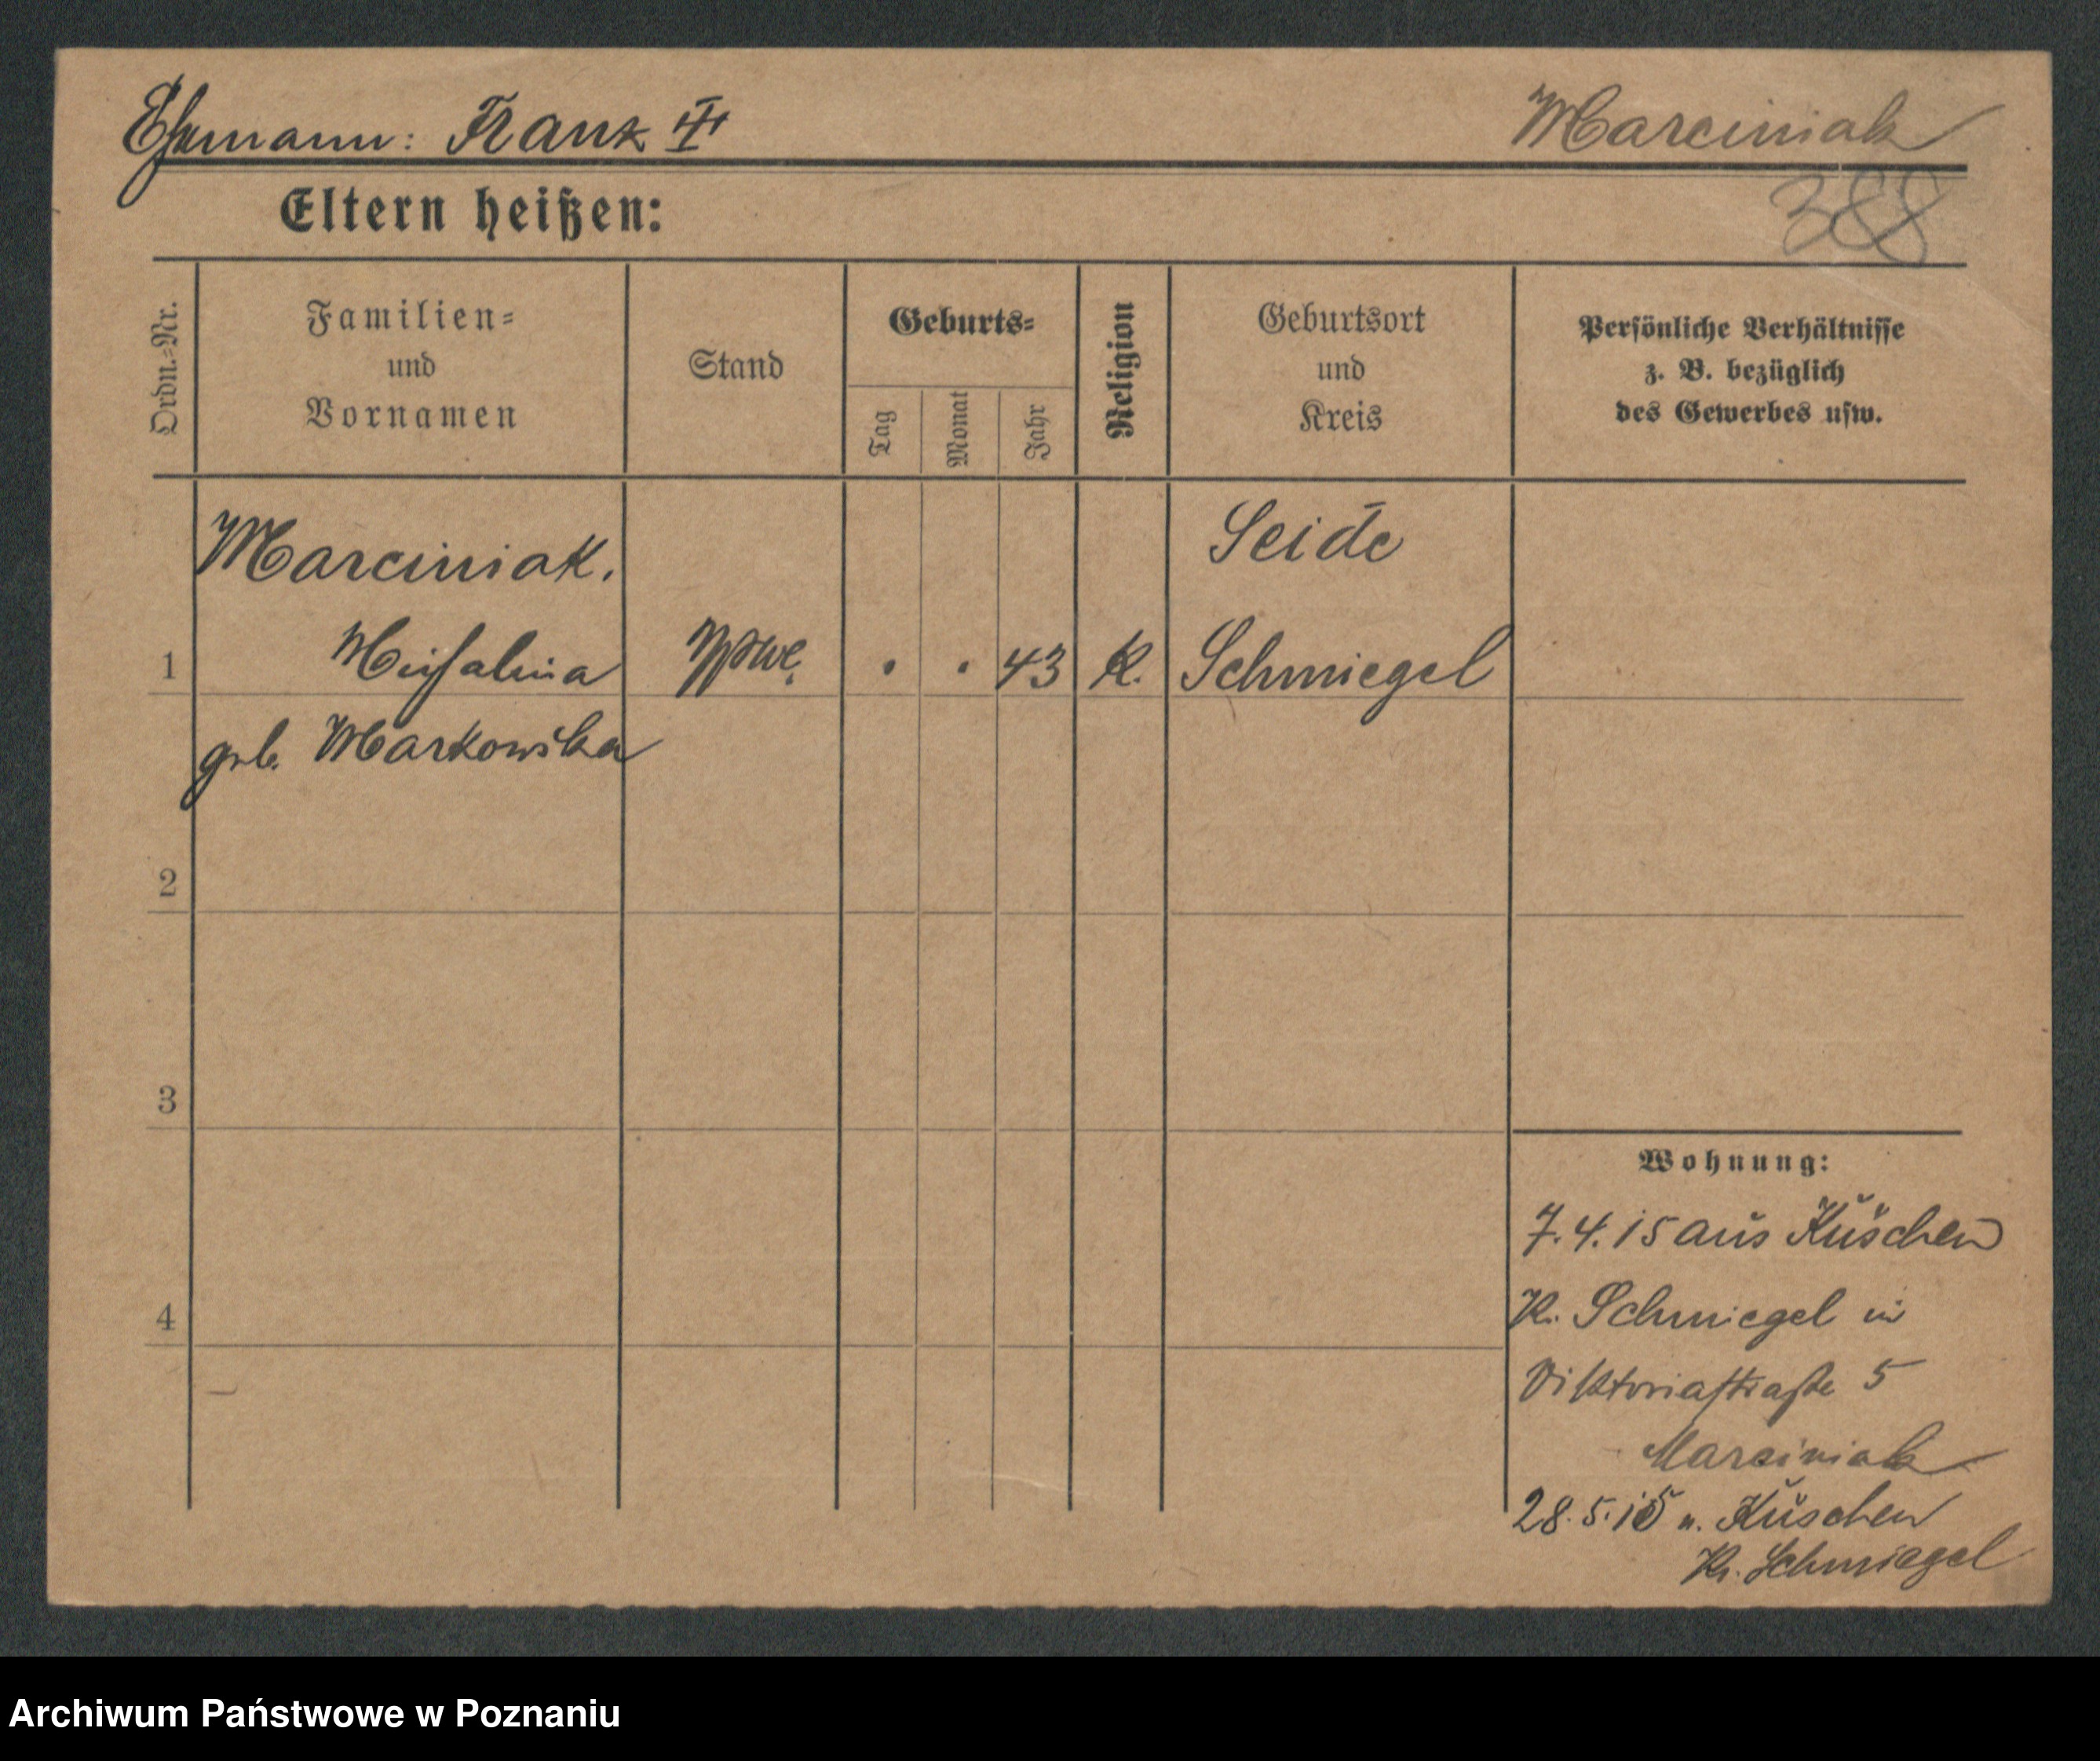 Ehemann: Franz II † Marciniak
388
Eltern heißen:
Ordn.-Nr. Familien- und Vornamen Stand Geburts- Tag Monat Jahr Religion Geburtsort und Kreis Persönliche Verhältnisse z. B. bezüglich des Gewerbes usw.
Marciniak. Seide
1 Michalina Wwe. . . 43 K. Schmiegel
geb. Markowska
2
3
Wohnung:
7.4.15 aus Kuschen
4 Kr. Schmiegel in
Viktoriastraße 5
Marciniak
28.5.15 n. Kuschen
Kr. Schmiegel
Archiwum Państwowe w Poznaniu